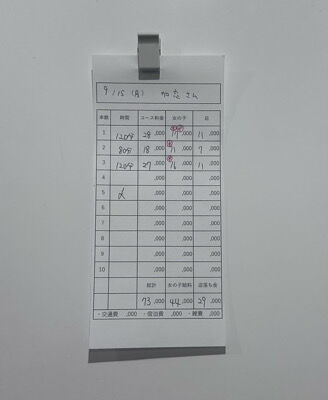 9/15（月） さん
本数 時間 コース料金 女の子 店
1 120分 28,000 17,000 11,000
2 80分 18,000 11,000 7,000
3 120分 27,000 16,000 11,000
4 ,000 ,000 ,000
5 ,000 ,000 ,000
6 ,000 ,000 ,000
7 ,000 ,000 ,000
8 ,000 ,000 ,000
9 ,000 ,000 ,000
10 ,000 ,000 ,000
総計 女の子給料 店落ち金
73,000 44,000 29,000
・交通費 ,000 ・宿泊費 ,000 ・雑費 ,000